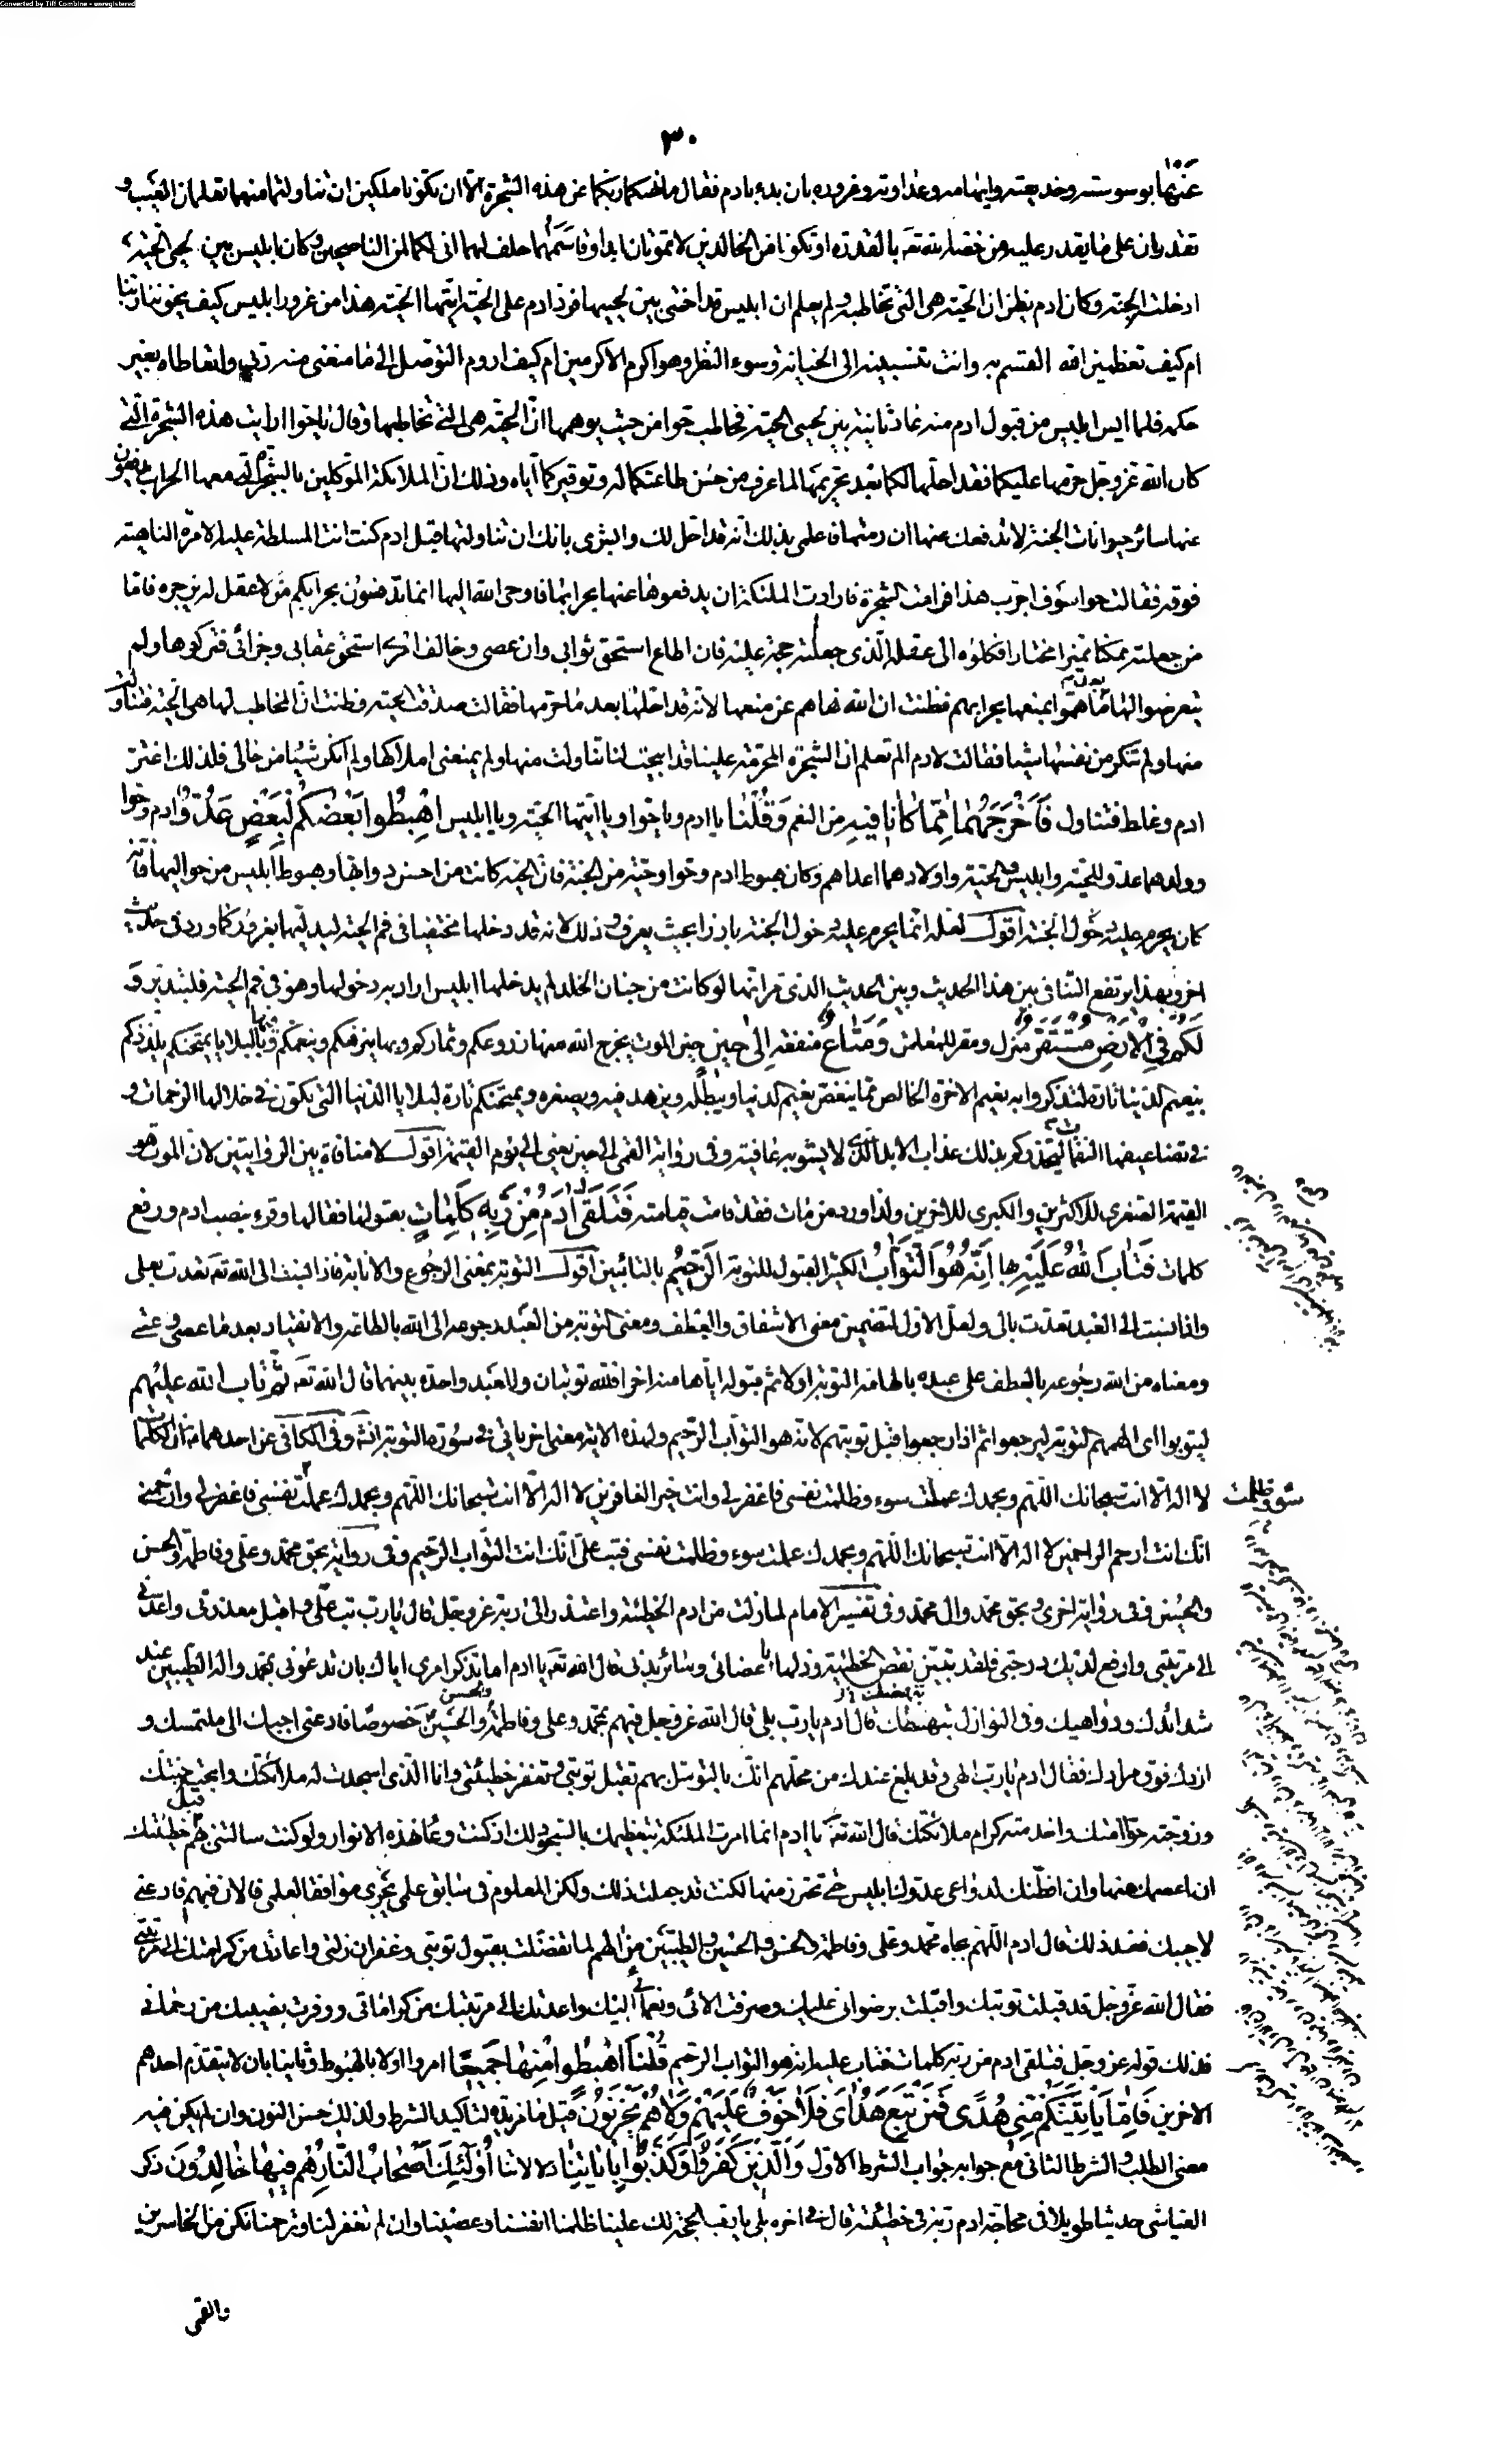 Converted by Tiff Combine - unregistered
٣٠
عنها بوسوسته وخديعته وايهامه وعداوته وغروره بان بدء بادم فقال ما نهيكما ربكما عن هذه الشجرة الا ان تكونا ملكين ان تناولتما منها تعلمان الغيب و
تقدران على ما يقدر عليه من خصه الله تعه بالقدرة او تكونا من الخالدين لا تموتان ابدا وقاسمهما حلف لهما انى لكما لمن الناصحين وكان ابليس بين لحيى الحية
ادخلته الجنة وكان ادم يظن ان الحية هى التى تخاطبه ولم يعلم ان ابليس قد اختبى بين لحييها فرد ادم على الحية ايتها الحية هذا من غرور ابليس كيف يخوننا ربنا
ام كيف تعظمين الله القسم به وانت تنسبينه الى الخيانة وسوء النظر وهو اكرم الاكرمين ام كيف اروم التوصل الى ما منعنى منه ربى واتعاطاه بغير
حكمه فلما ايس ابليس من قبول ادم منه عاد ثانية بين لحيى الحية فخاطب حوا من حيث يوهمها ان الحية هى التى تخاطبها وقال يا حوا ارايت هذه الشجرة التى
كان الله عز وجل حرمها عليكما فقد احلها لكما بعد تحريمها لما عرف من حسن طاعتكما له وتوقيركما اياه وذلك ان الملائكة الموكلين بالشجرة التى معها الحراب يدفعون
عنها سائر حيوانات الجنة لا تدفعك عنها ان رمتها فاعلمى بذلك انه قد احل لك وابشرى بانك ان تناولتها قبل ادم كنت انت المسلطة عليه الامرة الناهية
فوقه فقالت حوا سوف اجرب هذا فرامت الشجرة فارادت الملئكة ان يدفعوها عنها بحرابها فاوحى الله اليها انما تدفعون بحرابكم من لا عقل له يزجره فاما
من جعلته ممكنا مميزا مختارا فكلوه الى عقله الذى جعلته حجة عليه فان اطاع استحق ثوابى وان عصى وخالف امرى استحق عقابى وجزائى فتركوها ولم
يتعرضوا لها بعد ما هموا بمنعها بحرابهم فظنت ان الله نهاهم عن منعها لانه قد احلها بعد ما حرمها فقالت صدقت الحية وظنت ان المخاطب لها هى الحية فتناولت
منها ولم تنكر من نفسها شيئا فقالت لادم الم تعلم ان الشجرة المحرمة علينا قد ابيحت لنا تناولت منها ولم يمنعنى املاكها ولم انكر شيئا من حالى فلذلك اغتر
ادم وغلط فتناول فَاَخْرَجَهُمٰا مِمّٰا كٰانٰا فيهِ من النعم وَقُلْنٰا يا ادم ويا حوا ويا ايتها الحية ويا ابليس اهْبِطُوا بَعْضُكُمْ لِبَعْضٍ عَدُوٌّ ادم وحوا
وولدهما عدو للحية وابليس والحية واولادهما اعداهم وكان هبوط ادم وحوا وحية من الجنة فان الحية كانت من احسن دوابها وهبوط ابليس من حواليها فانه
كان يحرم عليه دخول الجنة اقول لعله انما يحرم عليه دخول الجنة بارزا بحيث يعرف وذلك لانه قد دخلها مختفيا فى فم الحية ليدليهما بغرور كما ورد فى حديث
اخر وبهذا يرتفع التنافى بين هذا الحديث وبين الحديث الذى مر انها لو كانت من جنان الخلد لم يدخلها ابليس اراد به دخولها وهو فى فم الحية فليتدبر وَ
لَكُمْ فِى الْاَرْضِ مُسْتَقَرٌّ منزل ومقر للمعاش وَمَتٰاعٌ منفعة اِلىٰ حينٍ حين الموت يخرج الله منها زروعكم وثماركم وبها ينزهكم وينعمكم وفيها بالبلايا يمتحنكم يلذذكم
بنعيم الدنيا تارة لتذكروا به نعيم الاخرة الخالص مما ينغص نعيم الدنيا ويبطله ويزهد فيه ويصغره ويمتحنكم تارة ببلايا الدنيا التى تكون فى خلالها الرحمات و
فى تضاعيفها النقمات ليحذركم بذلك عذاب الابد الذى لا يشوبه عافية وفى رواية القمى الى حين يعنى الى يوم القيمة اقول لا منافاة بين الروايتين لان الموت هو
القيمة الصغرى للاكثرين والكبرى للاخرين ولذا ورد من مات فقد قامت قيامته فَتَلَقّىٰ اٰدَمُ مِنْ رَبِّهِ كَلِمٰاتٍ يقولها فقالها وقرء بنصب ادم ورفع
كلمات فَتٰابَ اللهُ عَلَيْهِ بها اِنَّهُ هُوَ التَّوّٰابُ الكثير القبول للتوبة الرَّحيمُ بالتائبين اقول التوبة بمعنى الرجوع والانابة فاذا نسبت الى الله تعه تعدت بعلى
واذا نسبت الى العبد تعدت بالى ولعل الاول لتضمين معنى الاشفاق والعطف ومعنى التوبة من العبد رجوعه الى الله بالطاعة والانقياد بعد ما عصى وعتى
ومعناه من الله رجوعه بالعطف على عبده بالهامه التوبة اولا ثم قبوله اياها منه اخرا فلله توبتان وللعبد واحدة بينهما قال الله تعه ثم تاب الله عليهم
ليتوبوا اى الهمهم التوبة ليرجعوا ثم اذا رجعوا قبل توبتهم لانه هو التواب الرحيم ولهذه الاية معنى اخر ياتى فى سورة التوبة انشه وفى الكافى عن احدهما ان الكلمات
لا اله الا انت سبحانك اللهم وبحمدك عملت سوء وظلمت نفسى فاغفر لى وانت خير الغافرين لا اله الا انت سبحانك اللهم وبحمدك عملت نفسى فاغفر لى وارحمنى
سوء وظلمت
انك انت ارحم الراحمين لا اله الا انت سبحانك اللهم وبحمدك عملت سوء وظلمت نفسى فتب على انك انت التواب الرحيم وفى رواية بحق محمد وعلى وفاطمة والحسن
والحسين وفى رواية اخرى بحق محمد وال محمد وفى تفسير الامام لما زلت من ادم الخطيئة واعتذر الى ربه عز وجل قال يارب تب على واقبل معذرتى واعدنى
الى مرتبتى وارفع لديك درجتى فلقد تبين نقص الخطيئة وذلها باعضائى وسائر بدنى قال الله تعه يا ادم اما تذكر امرى اياك بان تدعونى بمحمد واله الطيبين عند
شدائدك ودواهيك وفى النوازل تبهظك قال ادم يارب بلى قال الله عز وجل فبهم بمحمد وعلى وفاطمة والحسن والحسين خصوصا فادعنى اجبك الى ملتمسك و
ازدك فوق مرادك فقال ادم يارب الهى وقد بلغ عندك من محلهم انك بالتوسل بهم تقبل توبتى وتغفر خطيئتى وانا الذى اسجدت له ملائكتك وابحته جنتك
وزوجته حوا امتك واخدمته كرام ملائكتك قال الله تعه يا ادم انما امرت الملئكة بتعظيمك بالسجود لك اذ كنت وعاء لهذه الانوار ولو كنت سالتنى بهم قبل خطيئتك
ان اعصمك منها وان افطنك لدواعى عدوك ابليس حتى تحترز منها لكنت قد جعلت ذلك ولكن المعلوم فى سابق علمى يجرى موافقا لعلمى فالان فبهم فادعنى
لاجيبك فعند ذلك قال ادم اللهم بجاه محمد وعلى وفاطمة والحسن والحسين والطيبين من الهم لما تفضلت بقبول توبتى وغفران زلتى واعادتى من كرامتك الى مرتبتى
فقال الله عز وجل قد قبلت توبتك واقبلت برضوانى عليك وصرفت الائى ونعمائى اليك واعدتك الى مرتبتك من كراماتى ووفرت نصيبك من رحماتى
فذلك قوله عز وجل فتلقى ادم من ربه كلمات فتاب عليه انه هو التواب الرحيم قُلْنَا اهْبِطُوا مِنْهٰا جَميعًا امروا اولا بالهبوط وثانيا بان لا يتقدم احدهم
الاخرين فَاِمّٰا يَاْتِيَنَّكُمْ مِنّى هُدًى فَمَنْ تَبِعَ هُدٰاىَ فَلٰا خَوْفٌ عَلَيْهِمْ وَلٰا هُمْ يَحْزَنُونَ قيل ما مزيدة لتاكيد الشرط ولذلك حسن النون وان لم يكن فيه
معنى الطلب والشرط الثانى مع جوابه جواب الشرط الاول وَالَّذينَ كَفَرُوا وَكَذَّبُوا بِاٰيٰاتِنٰا دلالاتنا اُولٰئِكَ اَصْحٰابُ النّٰارِ هُمْ فيهٰا خٰالِدُونَ ذكر
العياشى حديثا طويلا فى محاجة ادم ربه فى خطيئته قال فى اخره بلى يارب الحجة لك علينا ظلمنا انفسنا وعصينا وان لم تغفر لنا وترحمنا نكن من الخاسرين
والقمى